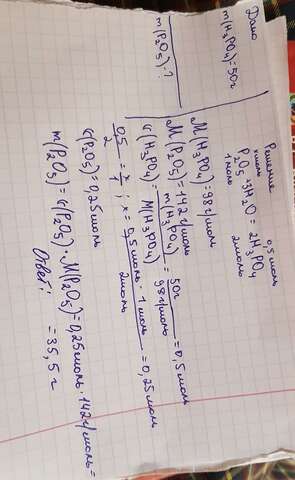 Дано
m(H₃PO₄)=50г
m(P₂O₅)-?
Решение
xмоль 0,5 моль
P₂O₅+3H₂O=2H₃PO₄
1моль 2моль
M(H₃PO₄)=98г/моль
M(P₂O₅)=142г/моль
G(H₃PO₄)=m(H₃PO₄)/M(H₃PO₄)=50г/98г/моль=0,5моль
0,5/2=x/1; x=0,5моль·1моль/2моль=0,25моль
G(P₂O₅)=0,25моль
m(P₂O₅)=G(P₂O₅)·M(P₂O₅)=0,25моль·142г/моль=
=35,5г
Ответ: